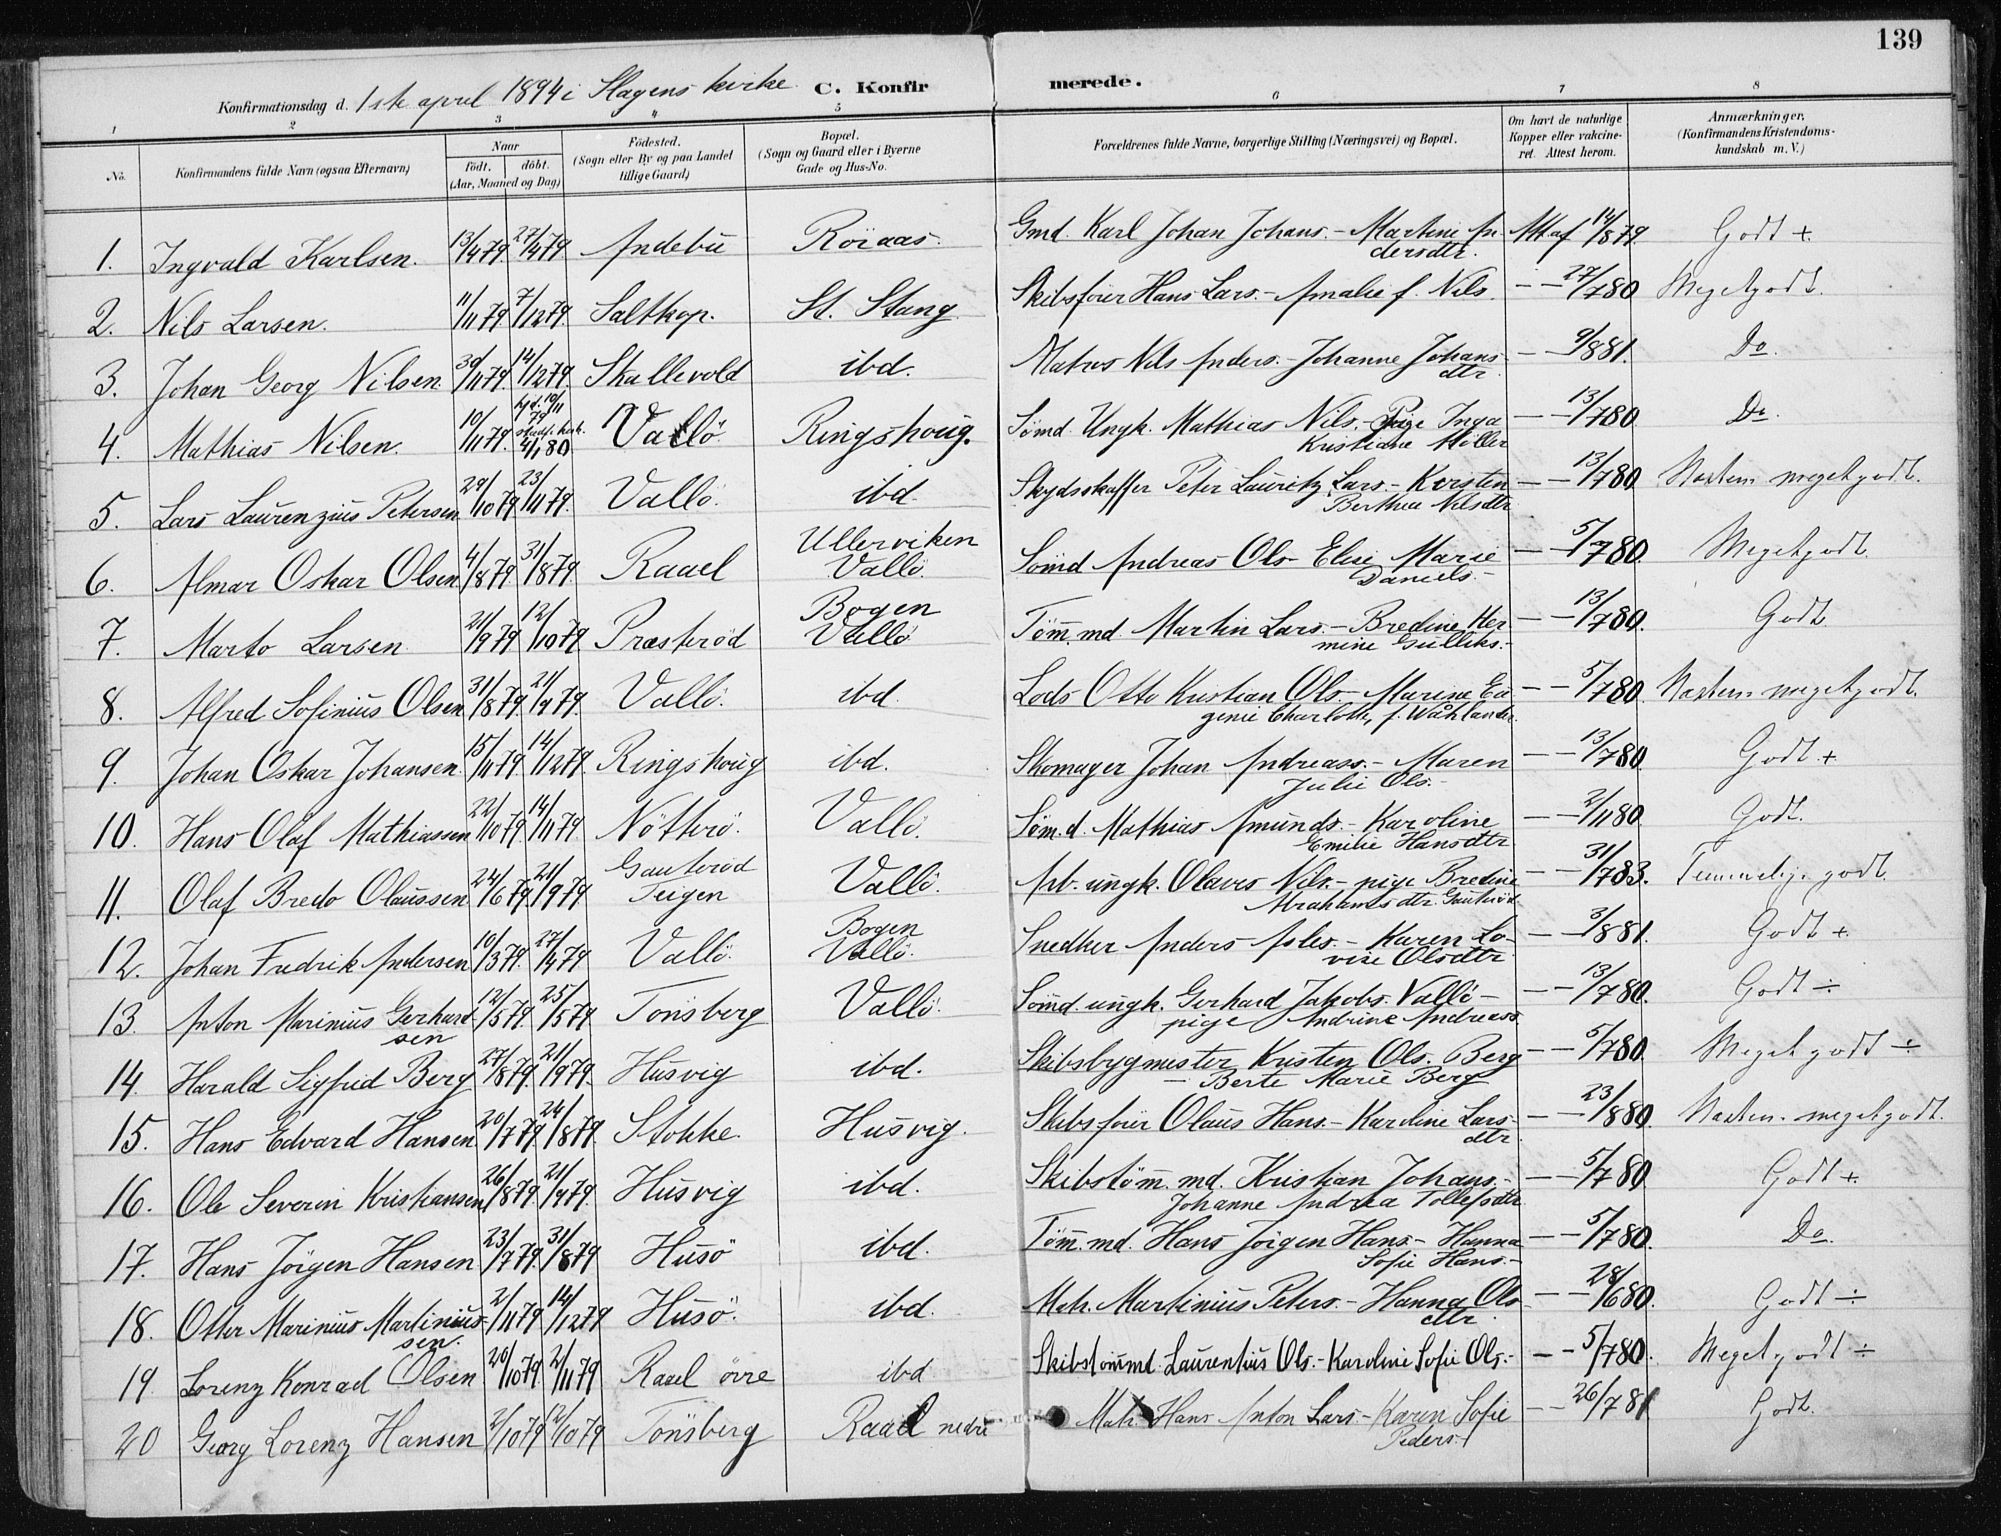 139
Konfirmationsdag d. 1ste april 1894 i Slagens kirke. C. Konfirmerede.
1 2 3 4 5 6 7 8
No. Konfirmandens fulde Navn (ogsaa Efternavn) Naar Födt. döbt. (Aar, Maaned og Dag) Födested. (Sogn eller By og paa Landet tillige Gaard) Bopæl. (Sogn og Gaard eller i Byerne Gade og Hus-No. Forældrenes fulde Navne, borgerlige Stilling (Næringsvei) og Bopæl. Om havt de naturlige Kopper eller vakcineret. Attest herom. Anmærkninger, (Konfirmandens Kristendomskundskab m. V.)
1. Ingvald Karlsen. 13/4 79 27/4 79 Andebu Röiaas. Gmd. Karl Johan Johans. - Martine Andersdtr. Att af 14/8 79. Godt +.
2. Nils Larsen. 11/11 79 7/12 79. Saltkop. St. Stang Skibsförer Hans Lars. - Amalie f. Nils. - - 27/7 80 Meget godt.
3. Johan Georg Nilsen. 30/11 79. 14/12 79. Skallevold ibd. Matros Nils Anders. - Johanne Johansdtr. - - 9/8 81. Do.
4. Mathias Nilsen. 10/11 79. hjd. 10/11 79 4/1 80 Vallö Ringshoug. Sömd. Ungk. Mathias Nils. - Pige Inga Kristiane Möller - - 13/7 80. Do
5. Lars Laurenzius Petersen 29/10 79 23/11 79. Vallö. ibd. Skydsskaffer Peter Lauritz Lars. - Kirsten Berthea Nilsdtr - - 13/7 80 Næsten meget godt.
6. Almar Oskar Olsen 4/8 79 31/8 79 Raael Ullerviken Vallö. Sömd Andreas Ols - Elise Marie Daniels. - - - 5/7 80. Meget godt
7. Marto Larsen 21/9 79 12/10 79 Præsteröd Bogen Vallö Tömmd. Martin Lars. - Bredine Hermine Gulliks. - - - 13/7 80. Godt
8. Alfred Sofinius Olsen 31/8 79 21/9 79. Vallö. ibd. Lods Otto Kristian Ols. - Marine Eugenie Charlotte, f. Wåhlander. - - 5/7 80. Næsten meget godt.
9. Johan Oskar Johansen 15/11 79. 14/12 79. Ringshoug ibd. Skomager Johan Andreass. - Maren Julie Ols. - - - 13/7 80. Godt +
10. Hans Olaf Mathiassen 22/10 79 14/11 79. Nötterö. Vallö. Söm.d. Mathias Amunds. - Karoline Emilie Hansdtr - - 2/11 80 Godt.
11. Olaf Bredo Olaussen 24/6 79 21/9 79 Gauteröd Teigen Vallö. Arb. ungk. Olaves Nils. - pige Bredine Abrahamsdtr. Gauteröd - - 31/7 83. Temmelig godt
12. Johan Fredrik Andersen 10/3 79. 27/4 79 Vallö. Bogen Vallö. Snedker Anders Asles. - Karen Lovise Olsdtr - - 3/8 81. Godt +
13 Anton Marinius Gerhardsen 12/5 79. 25/5 79 Tönsberg Vallö. Sömd. ungk. Gerhard Jakobs. Vallö - pige Andrine Andreass. - - 13/7 80. Godt ÷
14. Harald Sigfrid Berg 27/8 79. 21/9 79. Husvig ibd. Skibsbygmester Kristen Ols. Berg - Berte Marie Berg - - 5/7 80. Meget godt ÷
15. Hans Edvard Hansen 20/7 79. 24/8 79. Stokke Husvig. Skibsförer Olaus Hans. - Karoline Larsdtr. - - 23/8 80 Næsten meget godt.
16. Ole Severin Kristiansen 26/8 79. 21/9 79. Husvig ibd. Skibstöm.md. Kristian Johans. - Johanne Andrea Tollefsdtr. - - 5/7 80 Godt +.
17. Hans Jörgen Hansen 23/7 79. 31/8 79 Husö ibd. Töm.md. Hans Jörgen Hans. - Hanna Sofie Hans. - - - 5/7 80. Do.
18. Otter Marinius Martiniussen. 2/11 79 14/12 79 Husö. ibd. Matr. Martinius Peters. - Hanna Olsdtr. - - 28/6 80. Godt ÷
19. Lorenz Konrad Olsen 20/10 79 2/11 79 Raael övre ibd Skibstömmd. Laurentius Ols. - Karoline Sofie Ols. - - - 5/7 80. Meget godt ÷
20 Georg Lorenz Hansen 2/10 79 12/10 79 Tönsberg Raael nedre Matr. Hans Anton Lars - Karen Sofie Peders. - - 26/7 81 Godt.